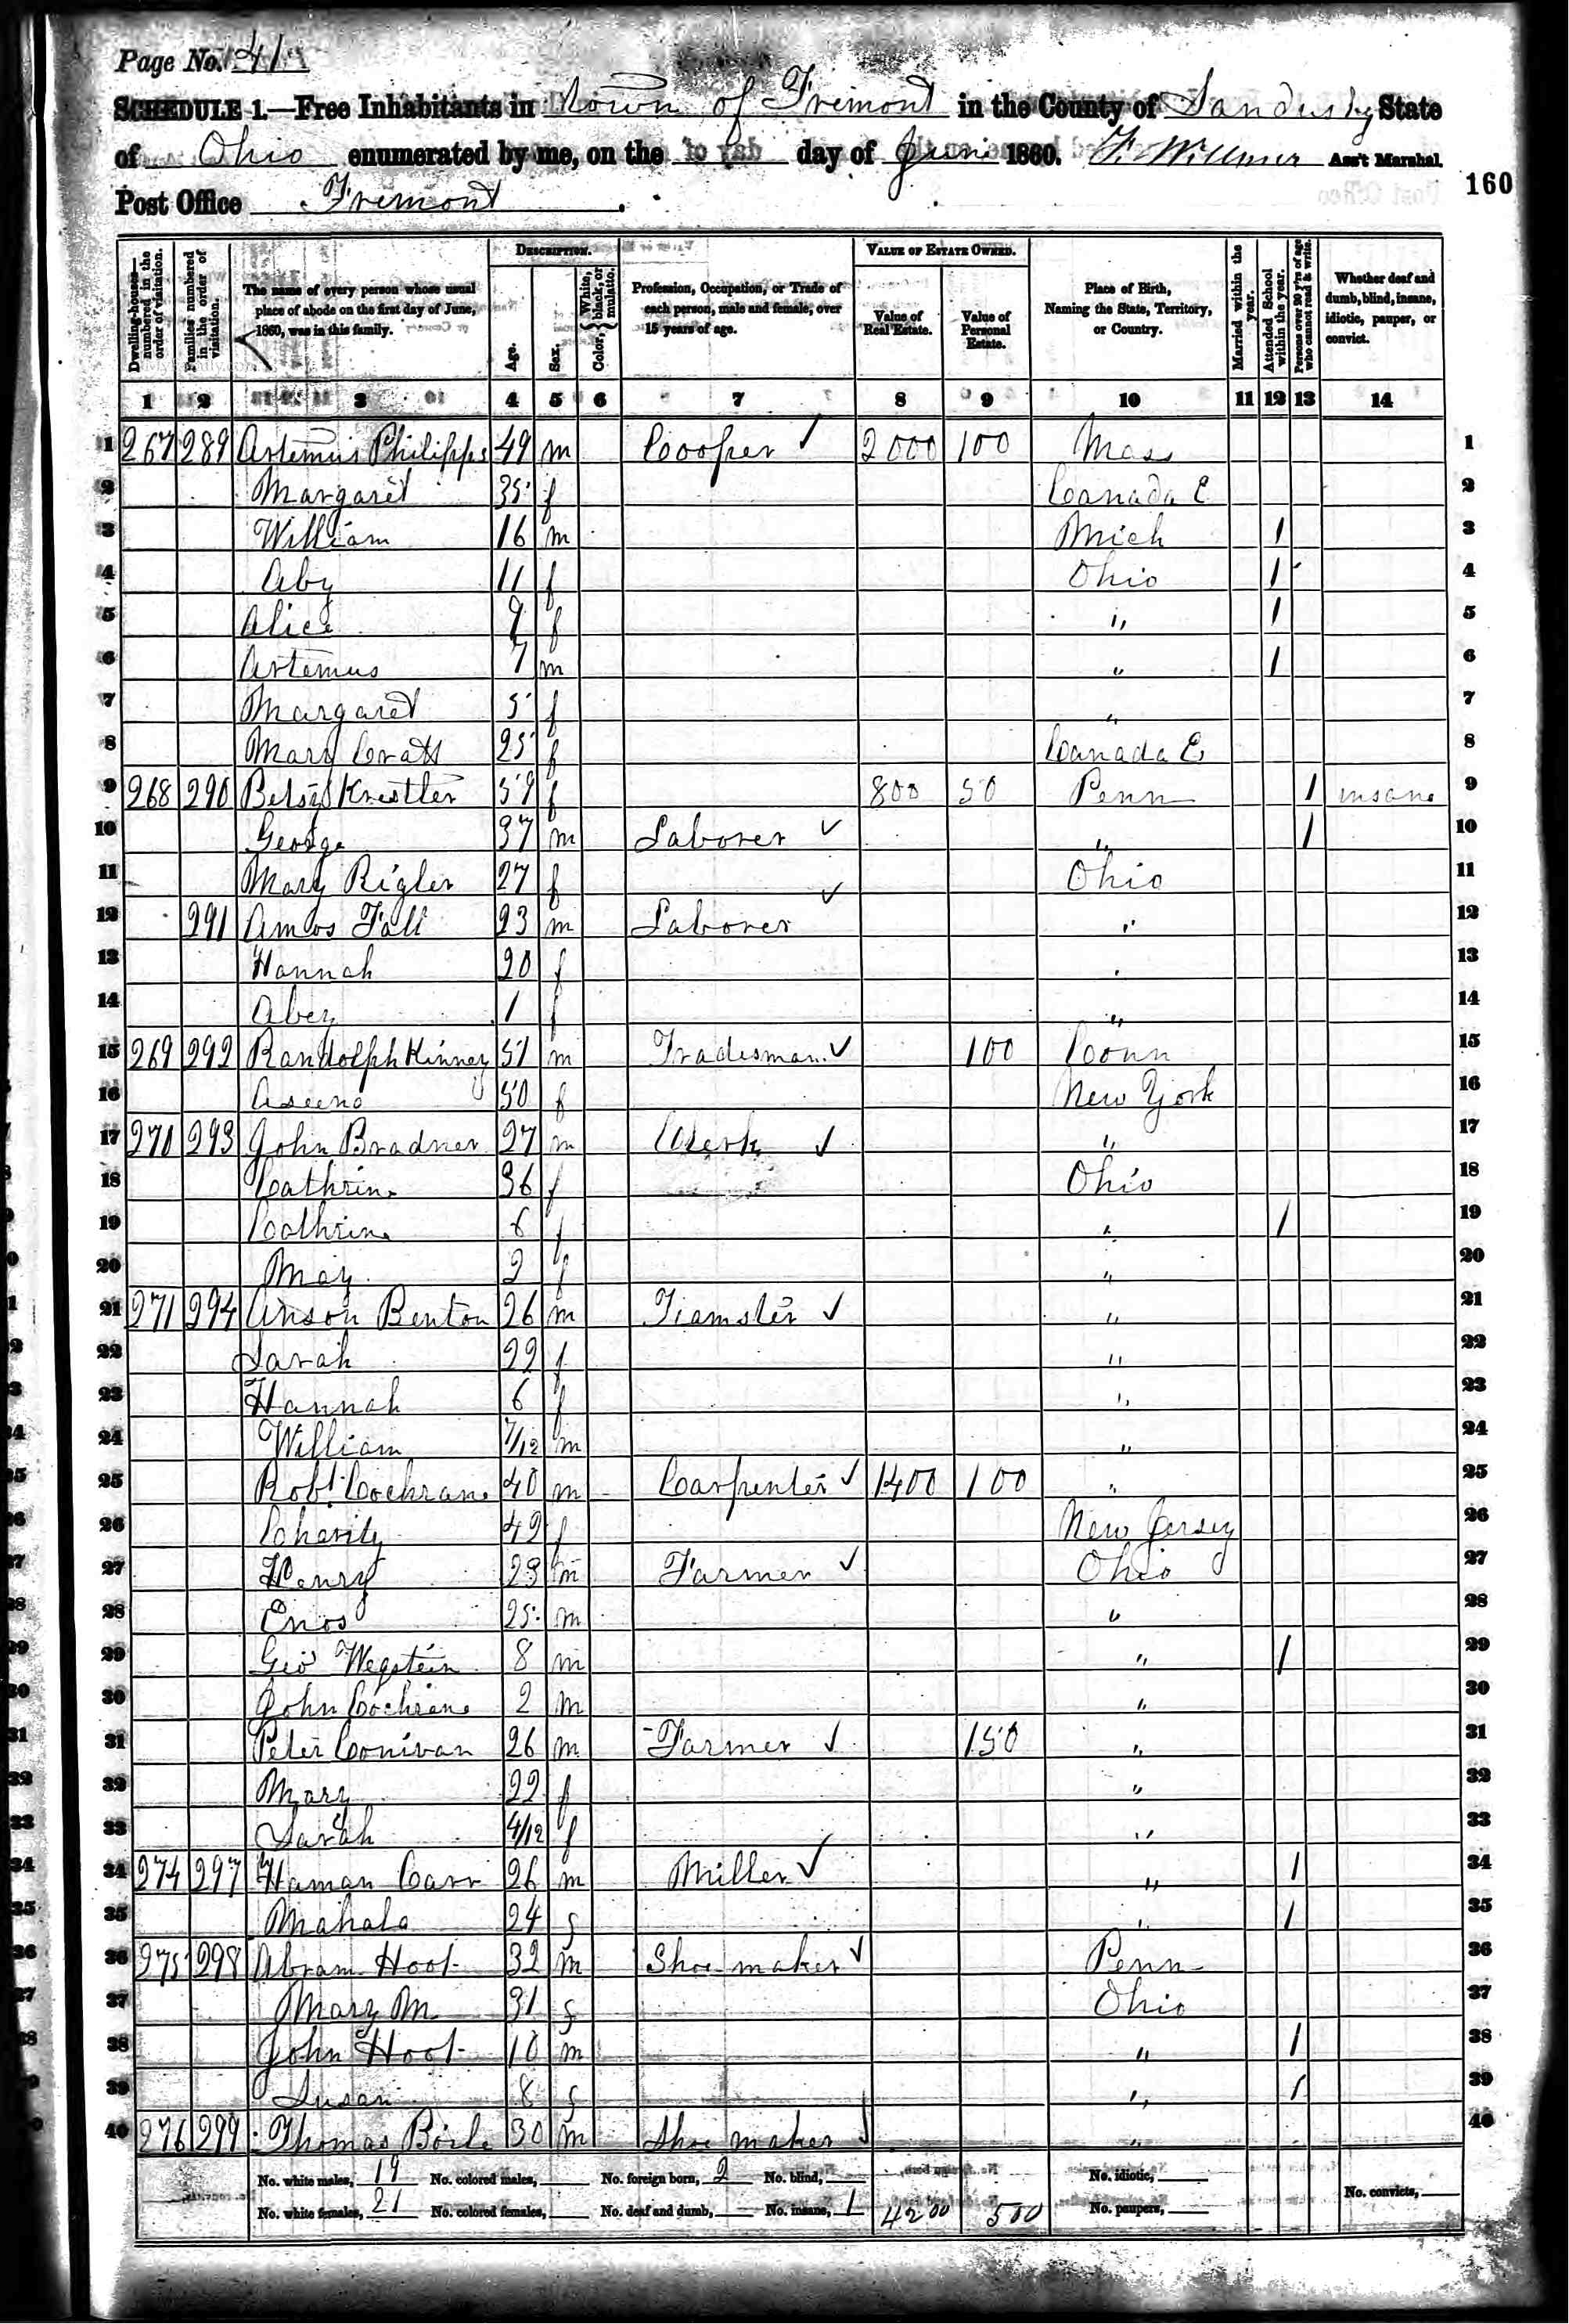 Page No. 41
SCHEDULE 1.—Free Inhabitants in Town of Fremont in the County of Sandusky State
of Ohio enumerated by me, on the day of June 1860. F. Willmer Ass't Marshal.
Post Office Fremont.
160
Dwelling-houses—numbered in the order of visitation.
Families numbered in the order of visitation.
The name of every person whose usual place of abode on the first day of June, 1860, was in this family.
DESCRIPTION.
Age.
Sex.
Color, { White, black, or mulatto.
Profession, Occupation, or Trade of each person, male and female, over 15 years of age.
VALUE OF ESTATE OWNED.
Value of Real Estate.
Value of Personal Estate.
Place of Birth, Naming the State, Territory, or Country.
Married within the year.
Attended School within the year.
Persons over 20 y'rs of age who cannot read & write.
Whether deaf and dumb, blind, insane, idiotic, pauper, or convict.
1 2 3 4 5 6 7 8 9 10 11 12 13 14
1 267 289 Artemus Philipps 49 m Cooper 2000 100 Mass 1
2 Margaret 35 f Canada E 2
3 William 16 m Mich 1 3
4 Aby 11 f Ohio 1 4
5 Alice 9 f " 1 5
6 Artemus 7 m " 1 6
7 Margaret 5 f " 7
8 Mary 25 f Canada E 8
9 268 290 Betsy Krestler 59 f 800 50 Penn 1 insane 9
10 George 37 m Laborer " 1 10
11 Mary Rigler 27 f Ohio 11
12 291 Amos Fall 23 m Laborer " 12
13 Hannah 20 f " 13
14 Abey 1 f " 14
15 269 292 Randolph Kinney 51 m Tradesman 100 Conn 15
16 Aseena 50 f New York 16
17 270 293 John Bradner 27 m Clerk " 17
18 Cathrine 36 f Ohio 18
19 Cathrine 6 f " 1 19
20 May 2 f " 20
21 271 294 Anson Benton 26 m Teamster " 21
22 Sarah 22 f " 22
23 Hannah 6 f " 23
24 William 7/12 m " 24
25 Robt. Cochrane 40 m Carpenter 1400 100 " 25
26 Cherity 42 f New Jersey 26
27 Henry 23 m Farmer Ohio 27
28 Enos 25 m " 28
29 Geo Wegstein 8 m " 1 29
30 John Cochrane 2 m " 30
31 Peter Conivan 26 m Farmer 150 " 31
32 Mary 22 f " 32
33 Sarah 4/12 f " 33
34 274 297 Haman Carr 26 m Miller " 1 34
35 Mahala 24 f " 1 35
36 275 298 Abram Hoot 32 m Shoemaker Penn 36
37 Mary M 31 f Ohio 37
38 John Hoot 10 m " 1 38
39 Susan 8 f " 1 39
40 276 299 Thomas 30 m Shoe maker " 40
No. white males, 19 No. colored males, No. foreign born, 2 No. blind, No. idiotic,
No. white females, 21 No. colored females, No. deaf and dumb, No. insane, 1 4200 500 No. paupers, No. convicts,